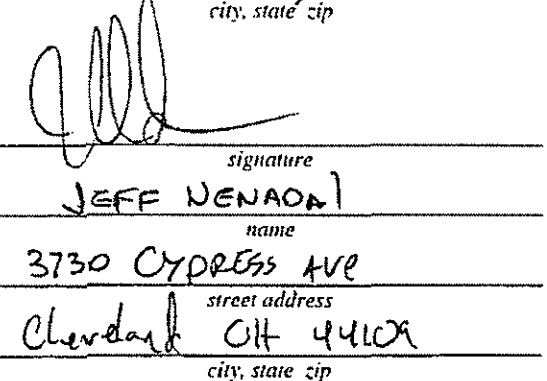 city, state zip
signature
JEFF NENADAl
name
3730 CYPRESS AVe
street address
Cleveland OH 44109
city, state zip